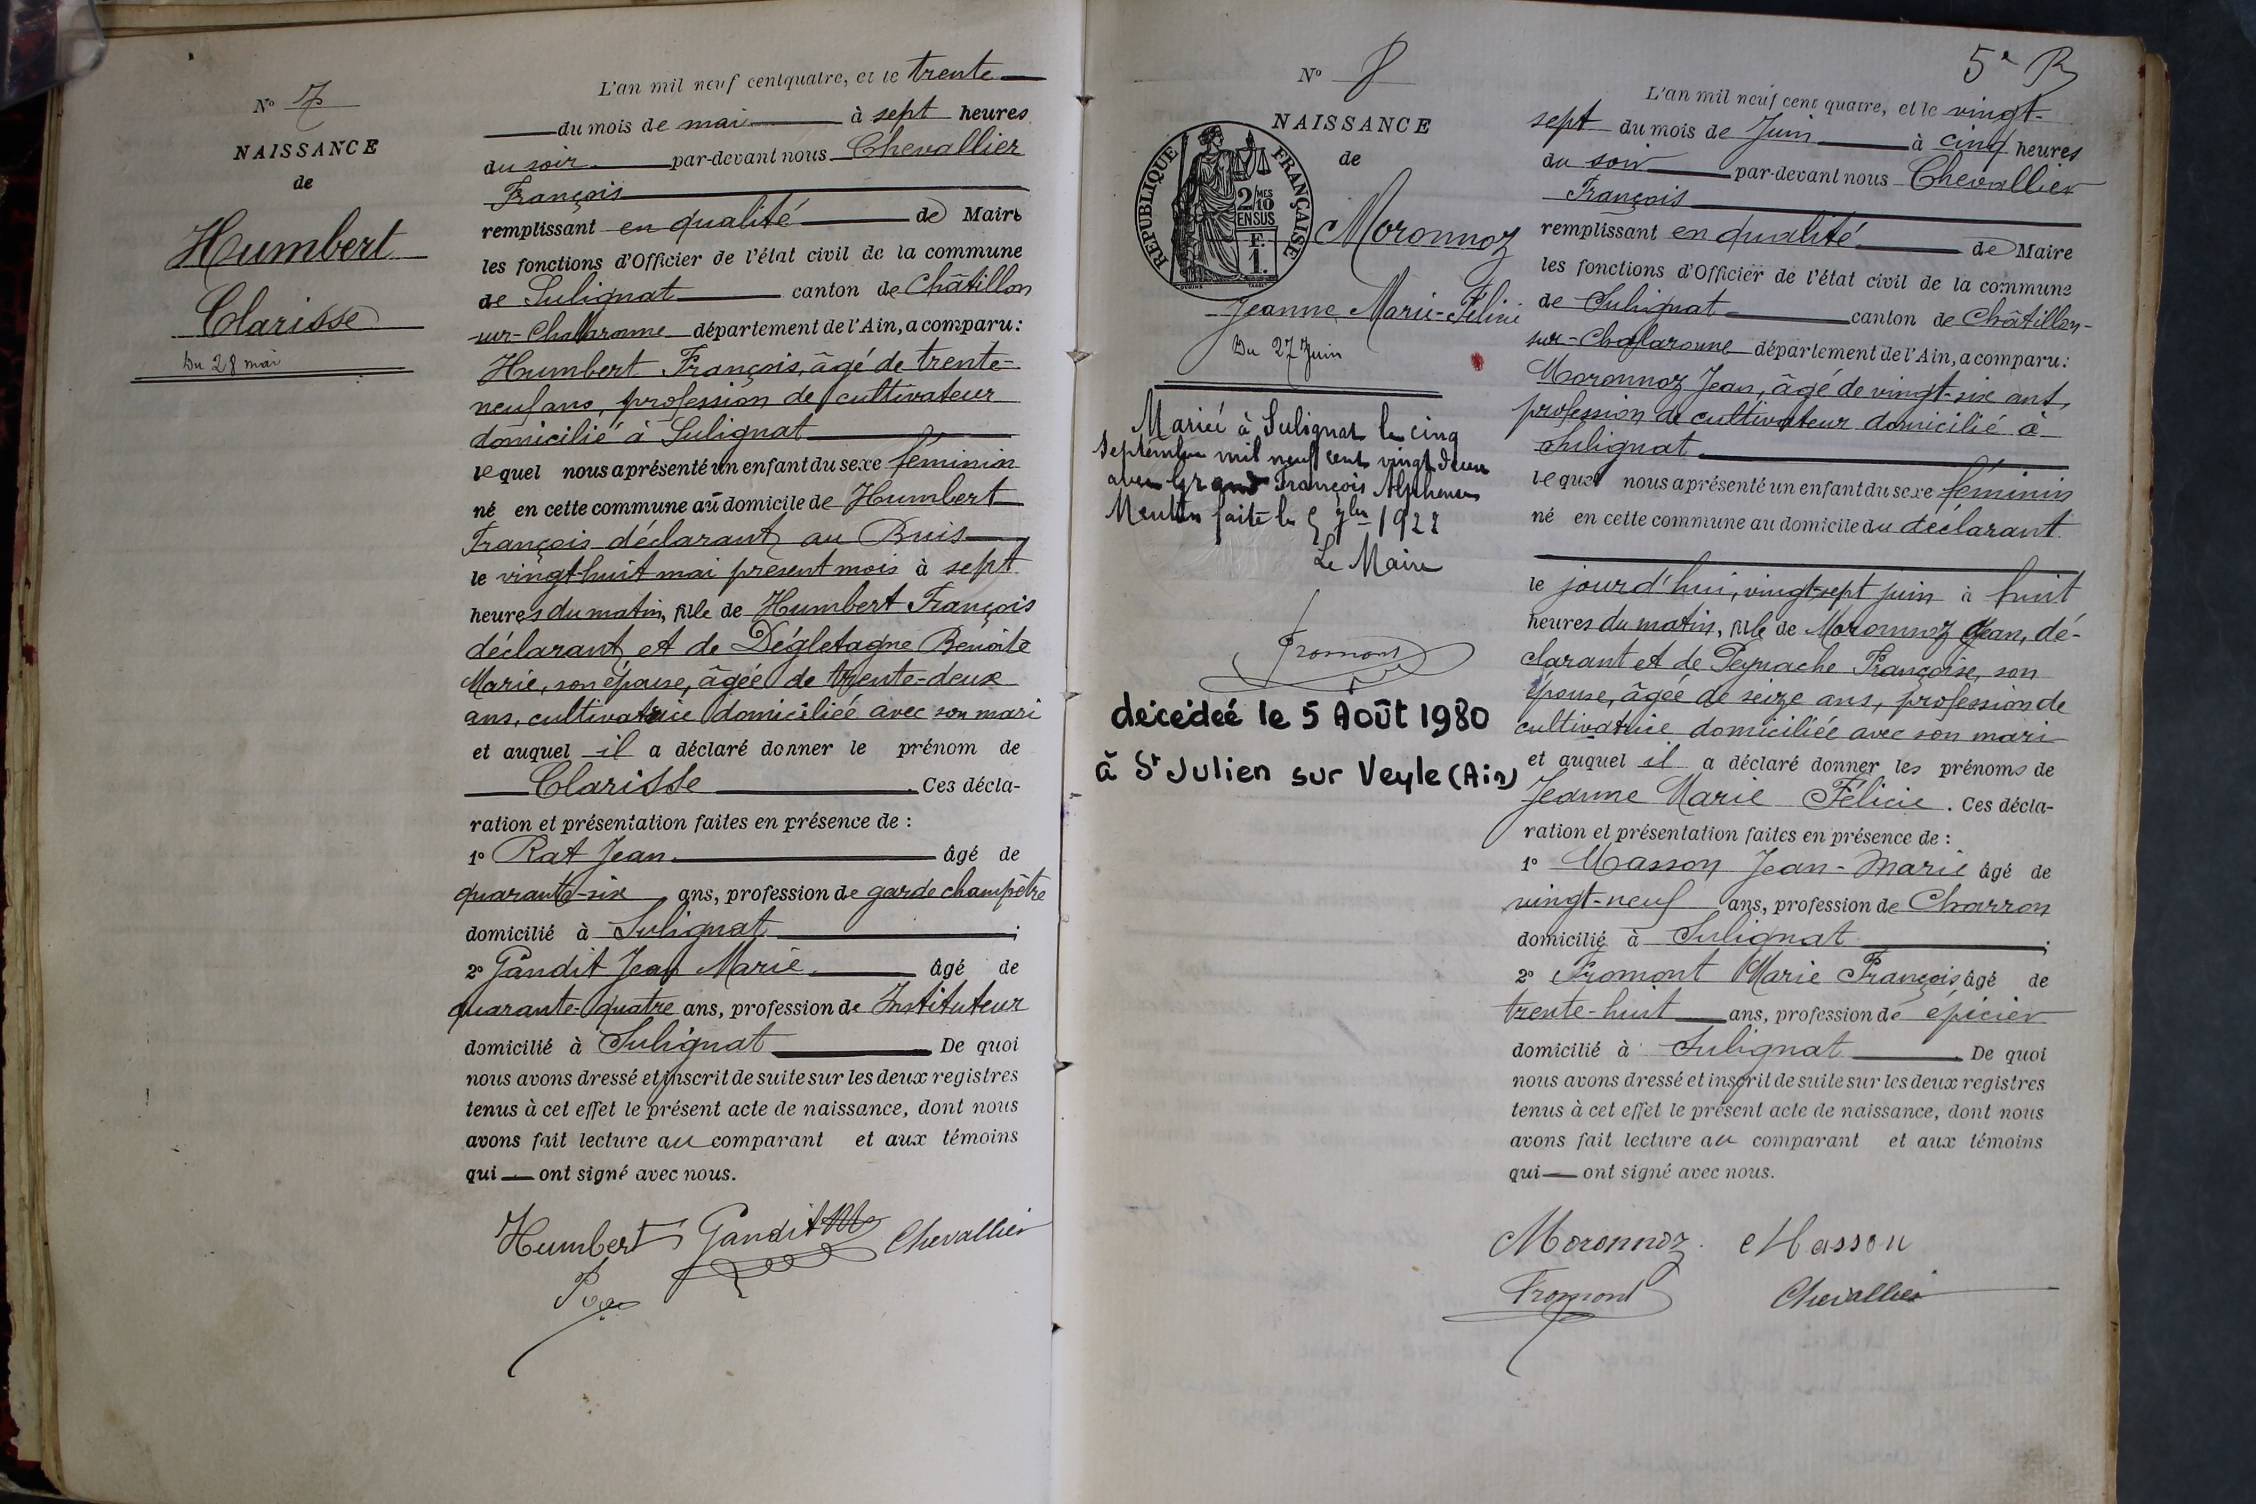 N° 7
NAISSANCE
de
Humbert
Clarisse
Du 28 mai
L'an mil neuf cent quatre, et le trente
du mois de mai à sept heures
du soir par-devant nous Chevallier
François
remplissant en qualité de Maire
les fonctions d'Officier de l'état civil de la commune
de Sulignat canton de Châtillon
sur-Chalaronne département de l'Ain, a comparu:
Humbert François, âgé de trente-
neuf ans, profession de cultivateur
domicilié à Sulignat
lequel nous a présenté un enfant du sexe féminin
né en cette commune au domicile de Humbert
François déclarant au Buis
le vingt-huit mai présent mois à sept
heures du matin, fille de Humbert François
déclarant et de Dégletagne Benoîte
Marie, son épouse, âgée de trente-deux
ans, cultivatrice domiciliée avec son mari
et auquel il a déclaré donner le prénom de
Clarisse Ces décla-
ration et présentation faites en présence de :
1° Rat Jean âgé de
quarante-six ans, profession de garde champêtre
domicilié à Sulignat ;
2° Gandit Jean Marie âgé de
quarante-quatre ans, profession de Instituteur
domicilié à Sulignat De quoi
nous avons dressé et inscrit de suite sur les deux registres
tenus à cet effet le présent acte de naissance, dont nous
avons fait lecture au comparant et aux témoins
qui ont signé avec nous.
Humbert Gandit Chevallier
5e B
N° 8
NAISSANCE
de
RÉPUBLIQUE FRANÇAISE
2/10 MES
EN SUS
F.
1.
Moronnoz
Jeanne Marie-Félicie
Du 27 Juin
Mariée à Sulignat le cinq
Septembre mil neuf cent vingt deux
avec Grand François Alphonse
Mention faite le 5 7bre 1922
Le Maire
Fromont
décédeé le 5 Août 1980
à St Julien sur Veyle (Ain)
L'an mil neuf cent quatre, et le vingt-
sept du mois de Juin à cinq heures
du soir par-devant nous Chevallier
François
remplissant en qualité de Maire
les fonctions d'Officier de l'état civil de la commune
de Sulignat canton de Châtillon-
sur-Chalaronne département de l'Ain, a comparu:
Moronnoz Jean, âgé de vingt-six ans,
profession de cultivateur domicilié à
Sulignat
lequel nous a présenté un enfant du sexe féminin
né en cette commune au domicile du déclarant
le jourd'hui, vingt-sept juin à huit
heures du matin, fille de Moronnoz Jean, dé-
clarant et de Peynache Françoise, son
épouse, âgée de seize ans, profession de
cultivatrice domiciliée avec son mari
et auquel il a déclaré donner les prénoms de
Jeanne Marie Félicie. Ces décla-
ration et présentation faites en présence de :
1° Masson Jean-Marie âgé de
vingt-neuf ans, profession de Charron
domicilié à Sulignat ;
2° Fromont Marie François âgé de
trente-huit ans, profession de épicier
domicilié à Sulignat De quoi
nous avons dressé et inscrit de suite sur les deux registres
tenus à cet effet le présent acte de naissance, dont nous
avons fait lecture au comparant et aux témoins
qui ont signé avec nous.
Moronnoz Masson
Fromont Chevallier